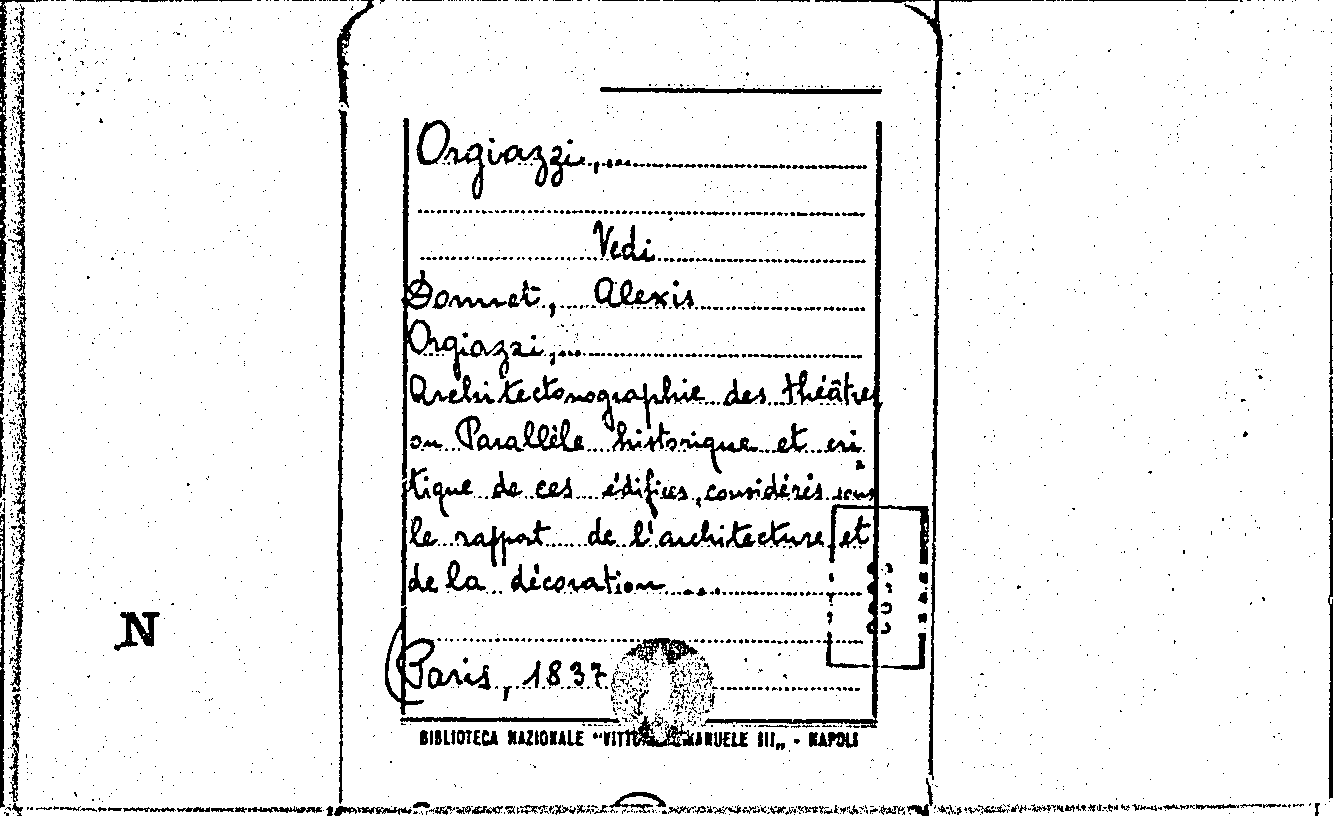 Orgiazzi,...
Vedi
Donnet, Alexis
Orgiazzi,...
Architectonographie des théâtres
ou Parallèle historique et cri
tique de ces édifices, considérés sous
le rapport de l'architecture et
de la décoration ...
N
Paris, 1837
BIBLIOTECA NAZIONALE "VITTORIO EMANUELE III„ - NAPOLI